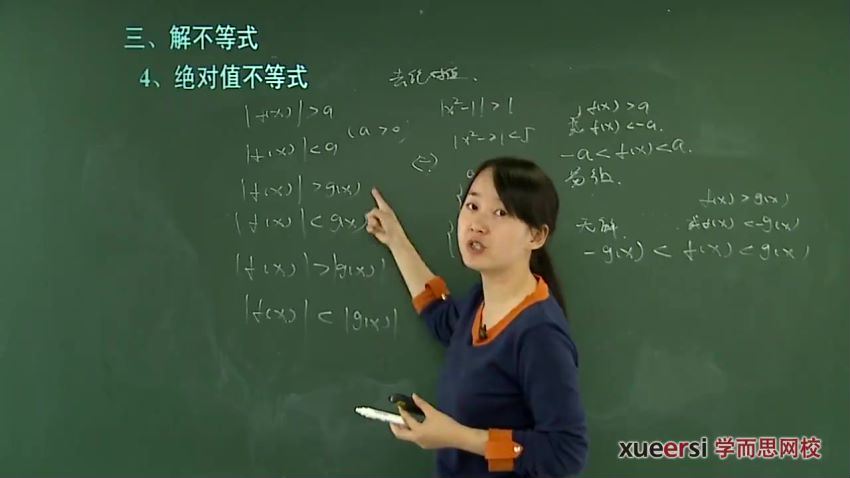 三、解不等式
4、绝对值不等式
去绝对值.
|f(x)|>a
|f(x)|<a
(a>0)
|f(x)|>g(x)
|f(x)|<g(x)
|f(x)|>|g(x)|
|f(x)|<|g(x)|
|x²-1|>1
|x²-2|<5
f(x)>a
或 f(x)<-a.
-a<f(x)<a.
无解.
f(x)>g(x)
或f(x)<-g(x)
-g(x)<f(x)<g(x)
xueersi 学而思网校